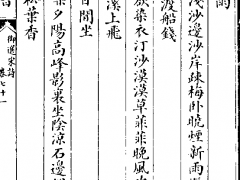 雨
淺沙邊沙岸疎梅卧曉煙新雨
渡船錢
欲染衣汀沙漠漠草菲菲晚風
溪上飛
日閒坐
夕陽高峰影裏坐陰涼石邊
葉香
御選宋詩 卷七十一